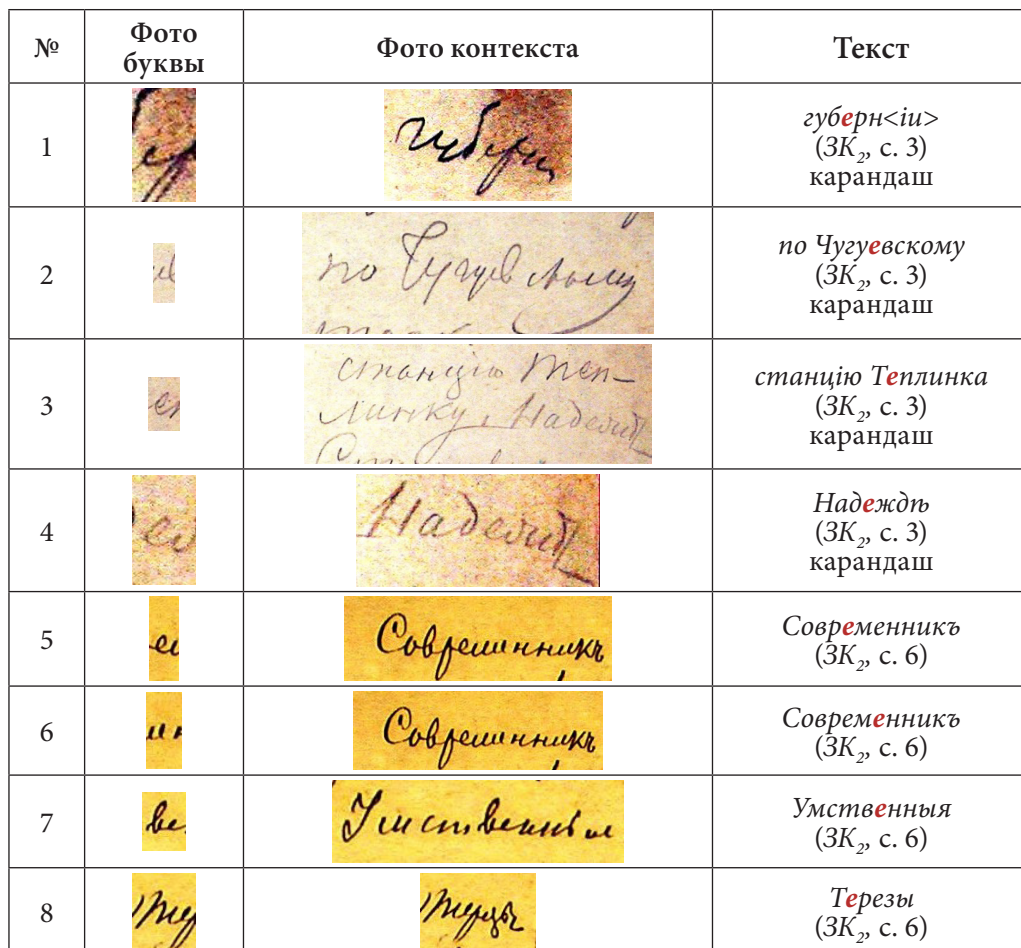 № Фото буквы Фото контекста Текст
1 губерн губерн<іи>
(ЗК₂, с. 3)
карандаш
2 по Чугуевскому по Чугуевскому
(ЗК₂, с. 3)
карандаш
3 станцію Теп-
линку, Надежд
станцію Теплинка
(ЗК₂, с. 3)
карандаш
4 Надежд Надеждѣ
(ЗК₂, с. 3)
карандаш
5 Современникъ Современникъ
(ЗК₂, с. 6)
6 Современникъ Современникъ
(ЗК₂, с. 6)
7 Умственныя Умственныя
(ЗК₂, с. 6)
8 Терезы Терезы
(ЗК₂, с. 6)